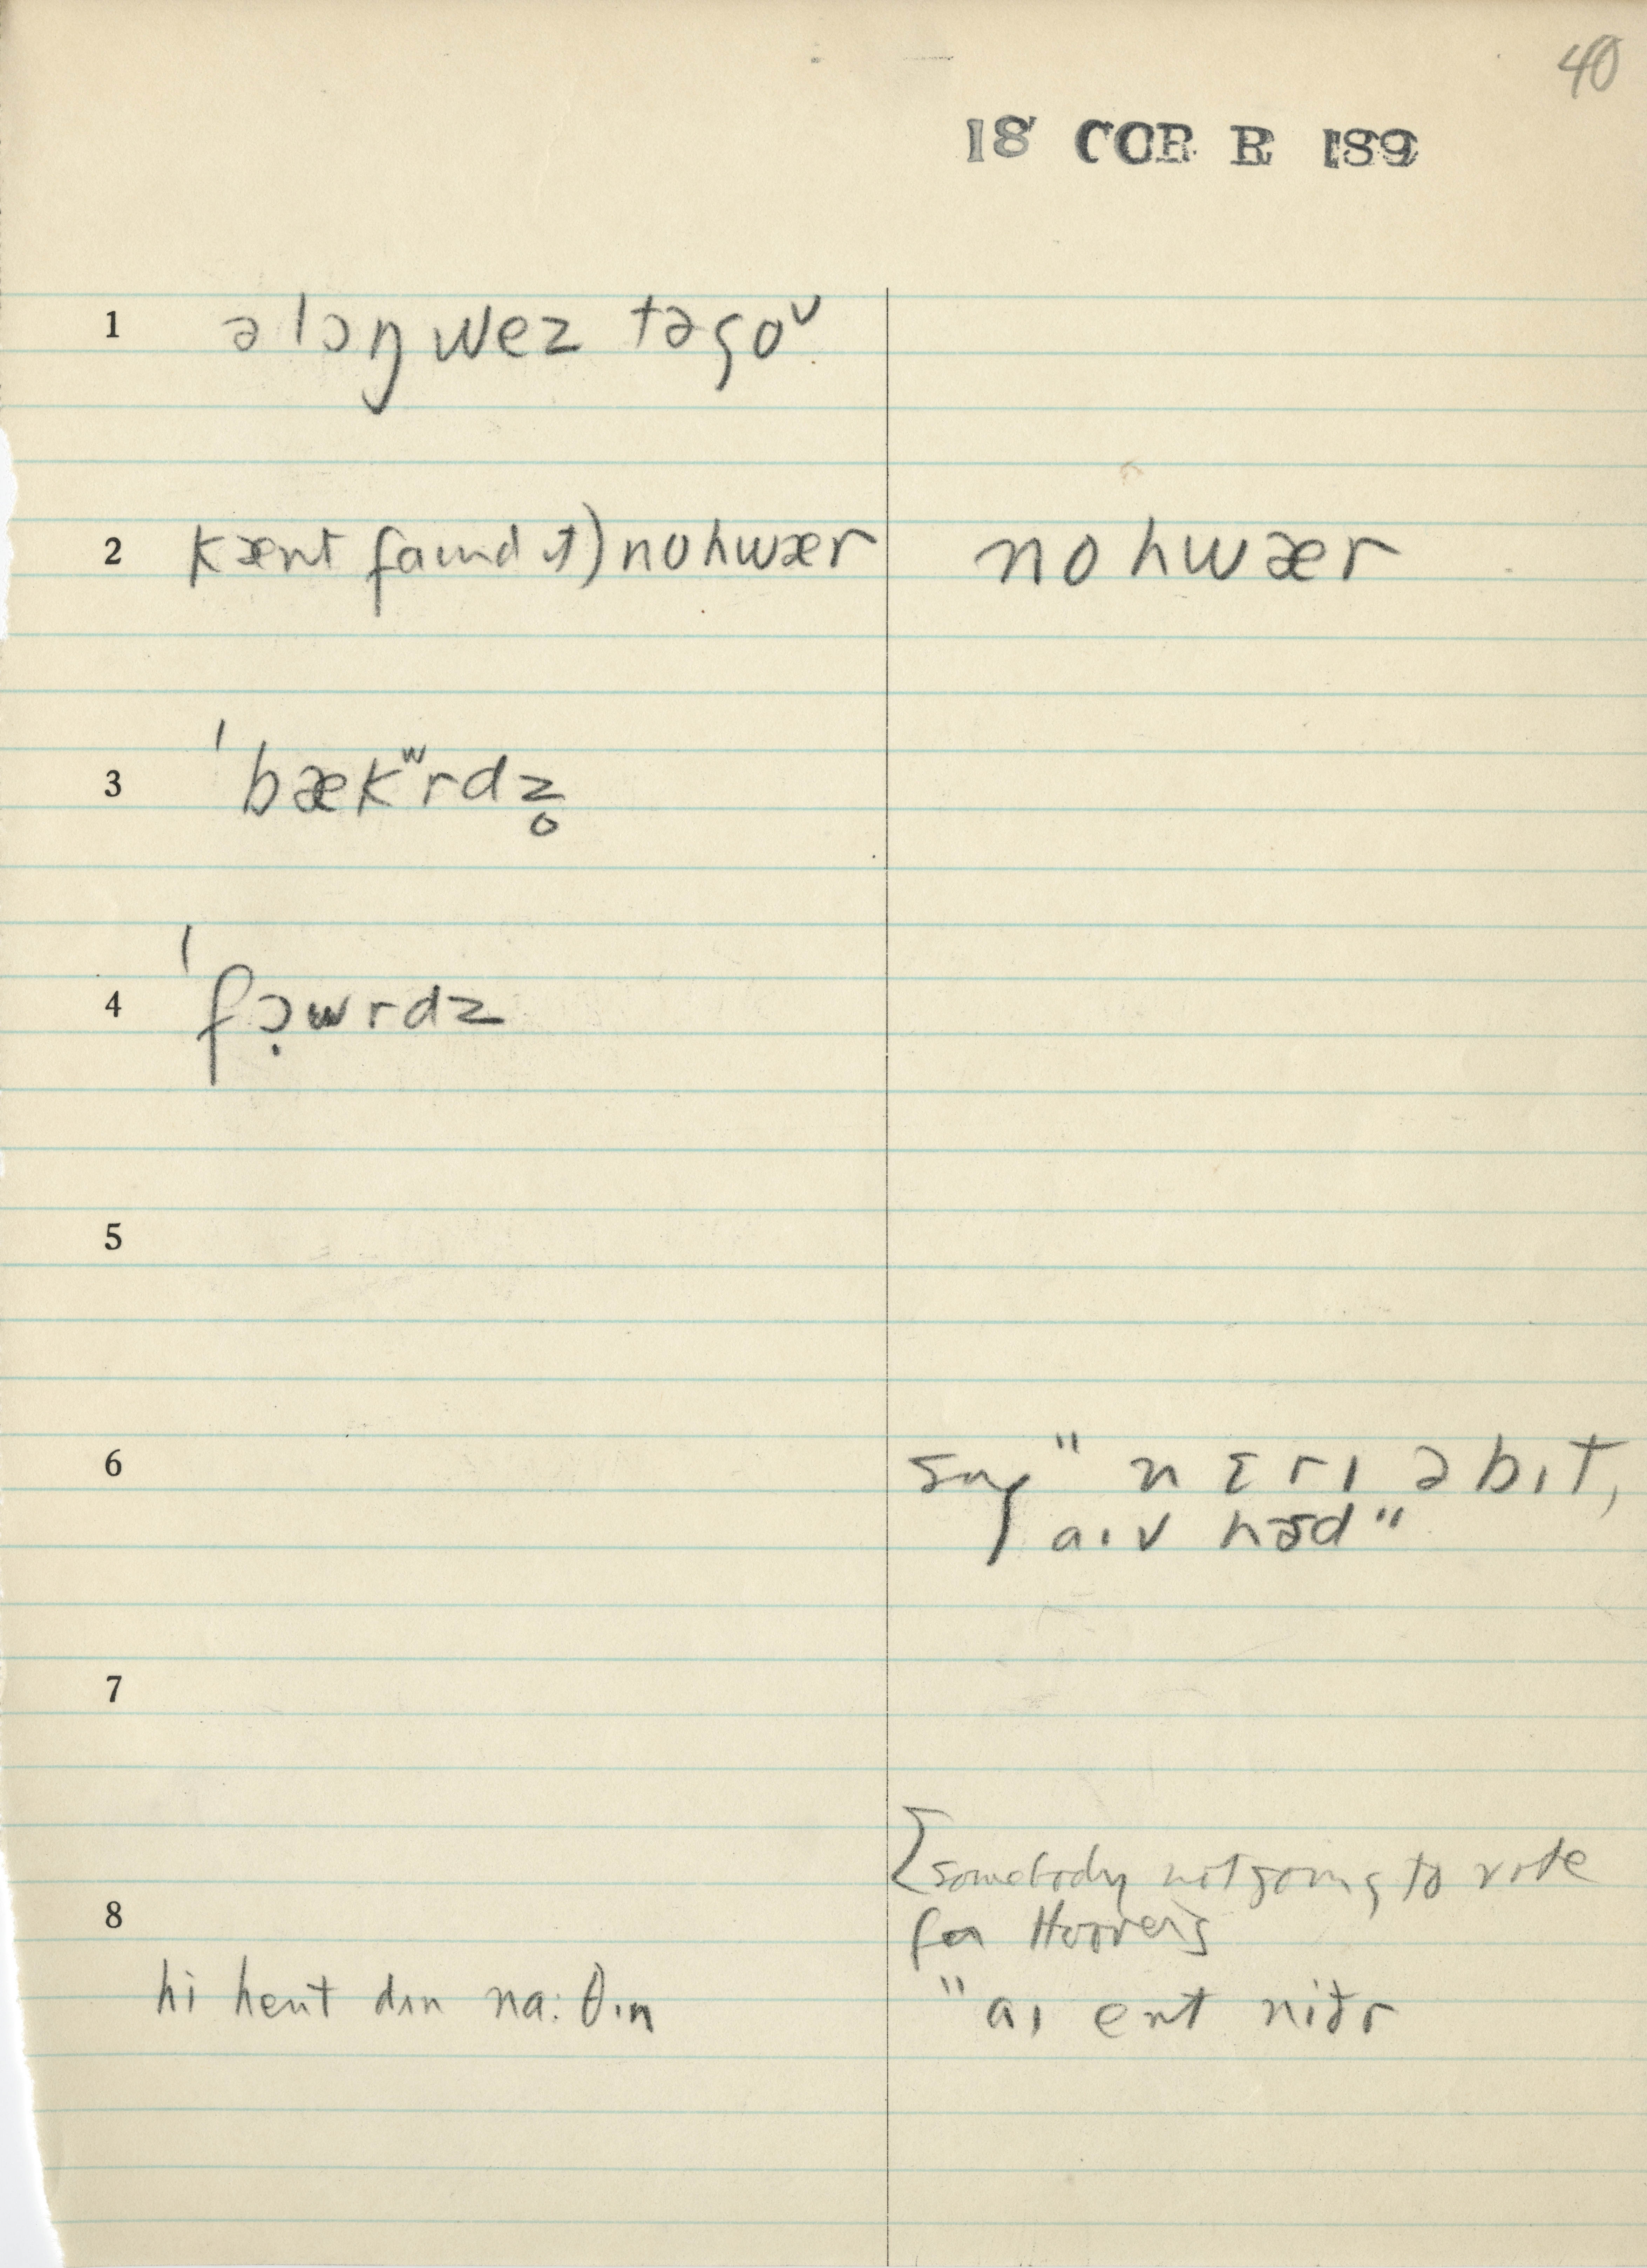 40
18 COR R 189
1 ə lɔŋ wez tə go ᴠ
2 kænt faɪnd ɪt) nohwær nohwær
3 ˈbækʷrdz̥
4 ˈfɔ̣wrdz
5
6 say "nɛrɪ ə bɪt,
aɪv hɜd"
7
[somebody not going to vote
8 for Hoover]
hi hent dɪn na:θɪn "aɪ ent niðr